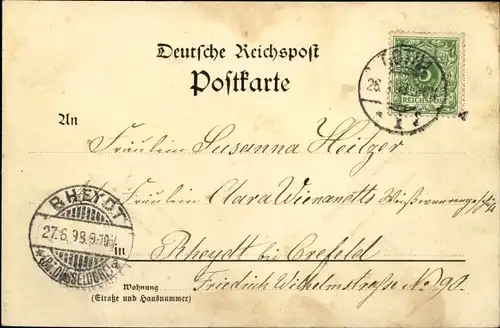 Deutsche Reichspost
Postkarte
5
REICHSPOST
26.
An
Fräulein Susanna Heitzer
Fräulein Clara Wienanotts Weißwarengeschäft
RHEYDT
27.6.98.9-10V.
*(Bz. DÜSSELDORF)*
in Rheydt bei Crefeld
Wohnung
(Straße und Hausnummer)
Friedrich Wilhelmstraße No 90.